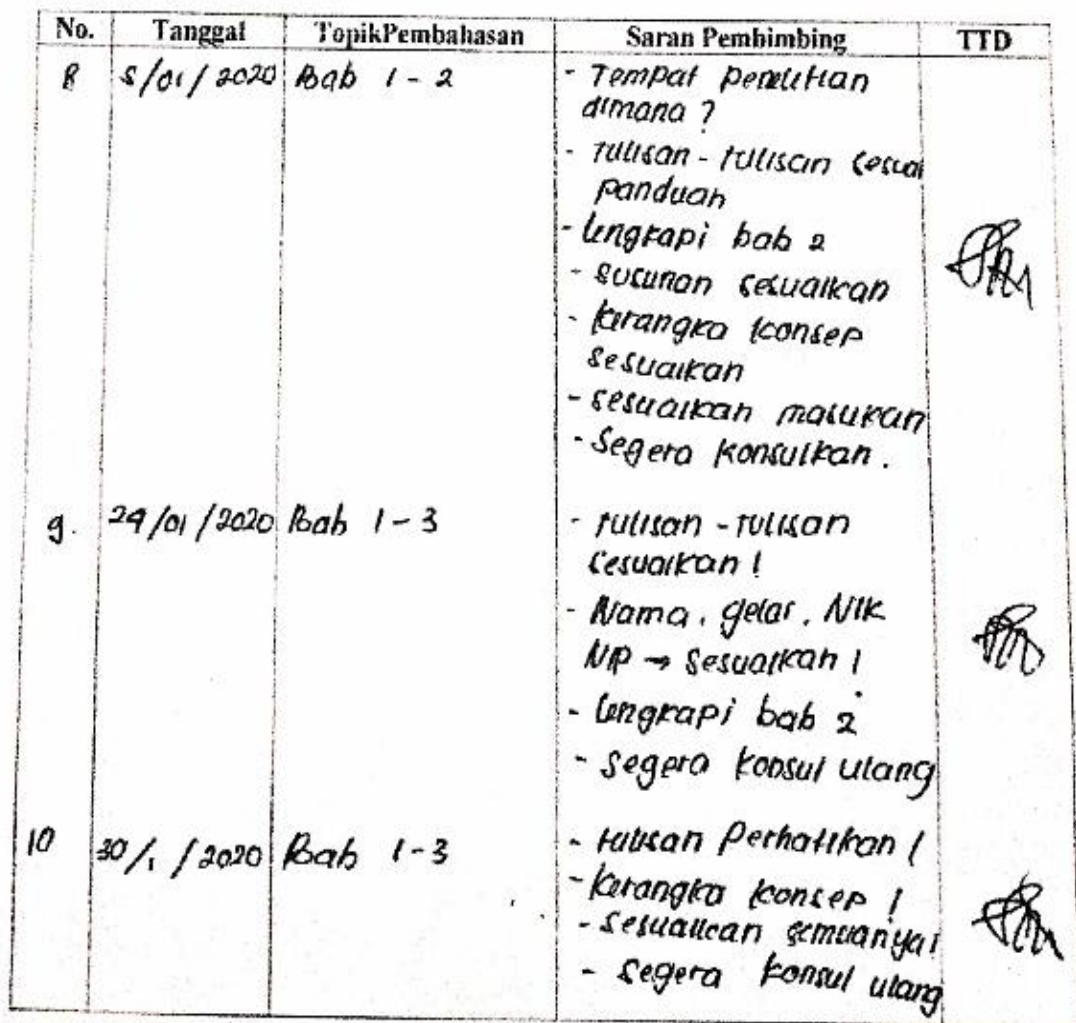 No. Tanggal TopikPembahasan Saran Pembimbing TTD
8 8/01/2020 Bab 1-2 - Tempat penelitian
dimana ?
- Tulisan-tulisan sesuai
panduan
- Lengkapi bab 2
- Susunan sesuaikan
- kerangka konsep
sesuaikan
- sesuaikan masukan
- Segera konsulkan.
9. 29/01/2020 Bab 1-3 - Tulisan-Tulisan
sesuaikan!
- Nama, gelar, NIK
NIP → Sesuaikan!
- Lengkapi bab 2
- Segera konsul ulang
10 30/1/2020 Bab 1-3 - tulisan Perhatikan!
- Kerangka konsep!
- Sesuaikan semuanya!
- Segera konsul ulang